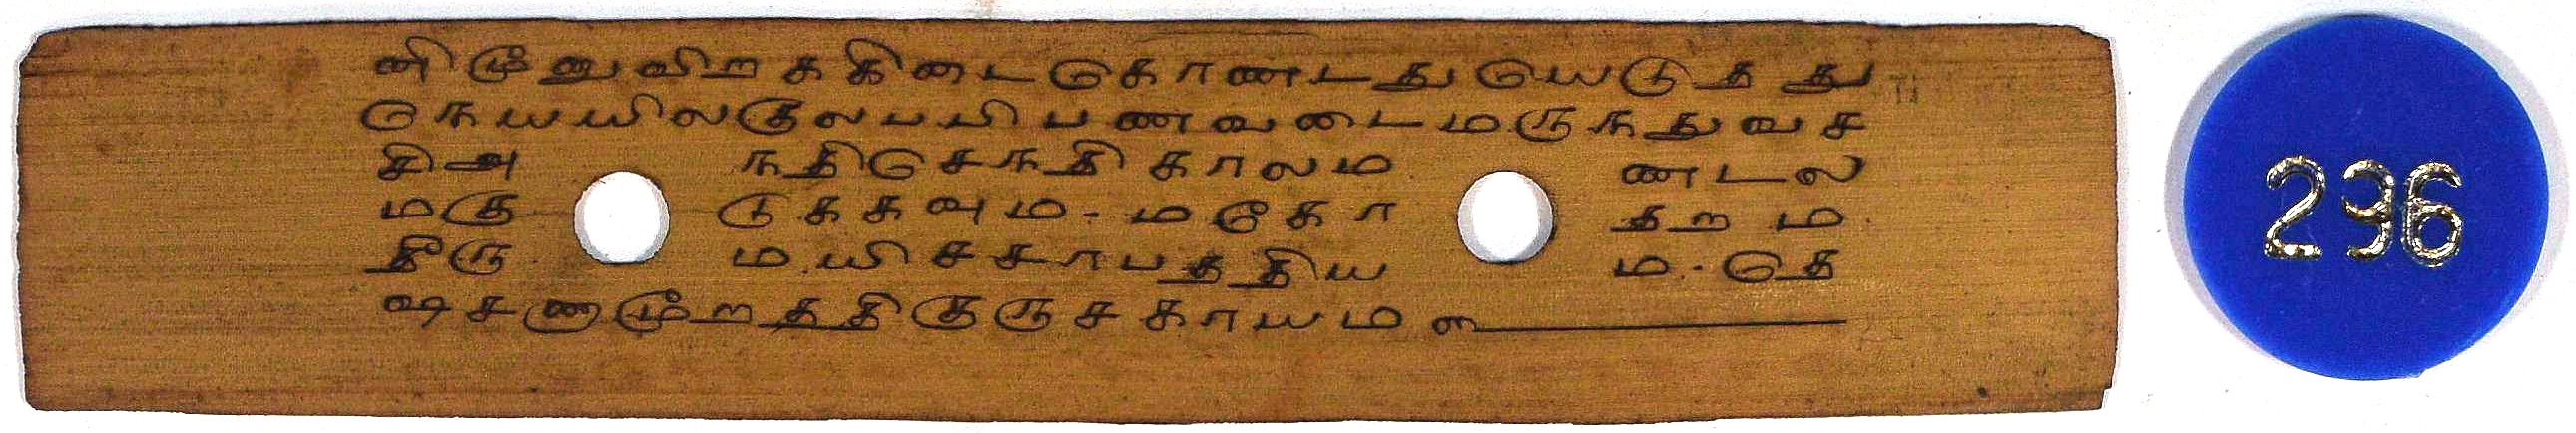 னிமூனுவிறசுகிடைகொணடதுயெடுதது
நெயயிலகுலபபிபணவடைமருநதுவச
சிஅ நதிசெநதி காலம ணடல
மகு டுககவும - மகோ தறம
தீரு ம யிசசாபததிய ம - தெ
ஷசணமூறததிகுருசகாயம
296